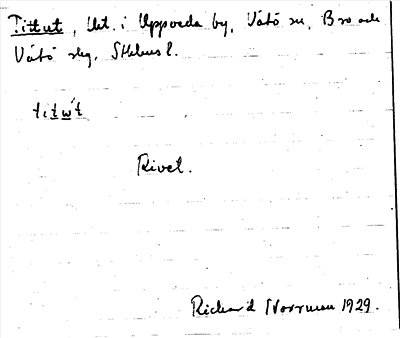 Tittut, Ut. i Uppsveda by, Vätö sn, Bro och
Vätö skg, Sthlms l.
titwt
Rivet.
Richard Norrman 1929.